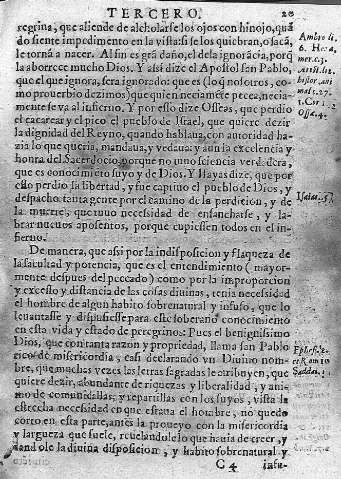 TERCERO. 20
regina, que aliende de alcholarse los ojos con hinojo, quã
do siente impedimento en la vista: si se los quiebran, o sacã,
le torna a nacer. Al fin es grã daño, el dela ignorãcia, porq̃
la aborrece mucho Dios. Y assi dize el Apostol san Pablo,
que el que ignora, sera ignorado: que es (lo q̃ nosotros, co-
mo prouerbio dezimos) que quien neciamẽte peca, necia-
mente se va al infierno. Y por esso dize Osseas, que perdio
el cacarear y el pico el pueblo de Israel, que quiere dezir
la dignidad del Reyno, quando hablaua, con autoridad ha-
zia lo que queria, mandaua, y vedaua: y aun la excelencia y
honra del Sacerdocio, porque no tuuo sciencia verdadera,
que es conocimiẽto suyo y de Dios. Y Isayas dize, que por
esto perdio su libertad, y fue captiuo el pueblo de Dios, y
despacho tanta gente por el camino de la perdicion, y de
la muerte, que tuuo necessidad de ensancharse, y la-
brar nueuos aposentos, porque cupiessen todos en el in-
fierno.
De manera, que assi por la indisposicion y flaqueza de
la facultad y potencia, que es el entendimiento (mayor-
mente despues del peccado) como por la improporcion
y excesso y distancia de las cosas diuinas, tenia necessidad
el hombre de algun habito sobrenatural y infuso, que lo
leuantasse y dispusiesse para este soberano conocimiento
en esta vida y estado de peregrino: Pues el benignissimo
Dios, que con tanta razon y propriedad, llama san Pablo
rico de misericordia, casi declarando vn Diuino nom-
bre, que muchas vezes las letras sagradas le atribuyen, que
quiere dezir, abundante de riquezas y liberalidad, y ani-
mo de comunicallas, y repartillas con los suyos, vista la
estrecha necessidad en que estaua el hombre, no quedo
corto en esta parte, antes la proueyo con la misericordia
y largueza que suele, reuelandole lo que hauia de creer, y
dandole la diuina disposicion, y habito sobrenatural y
C 4 infu-
Ambro li.
6. Hexa
mer. c. 3.
1. Cor. 1
Osse. 4.
Isaiæ. 5.
Ephes. 2.